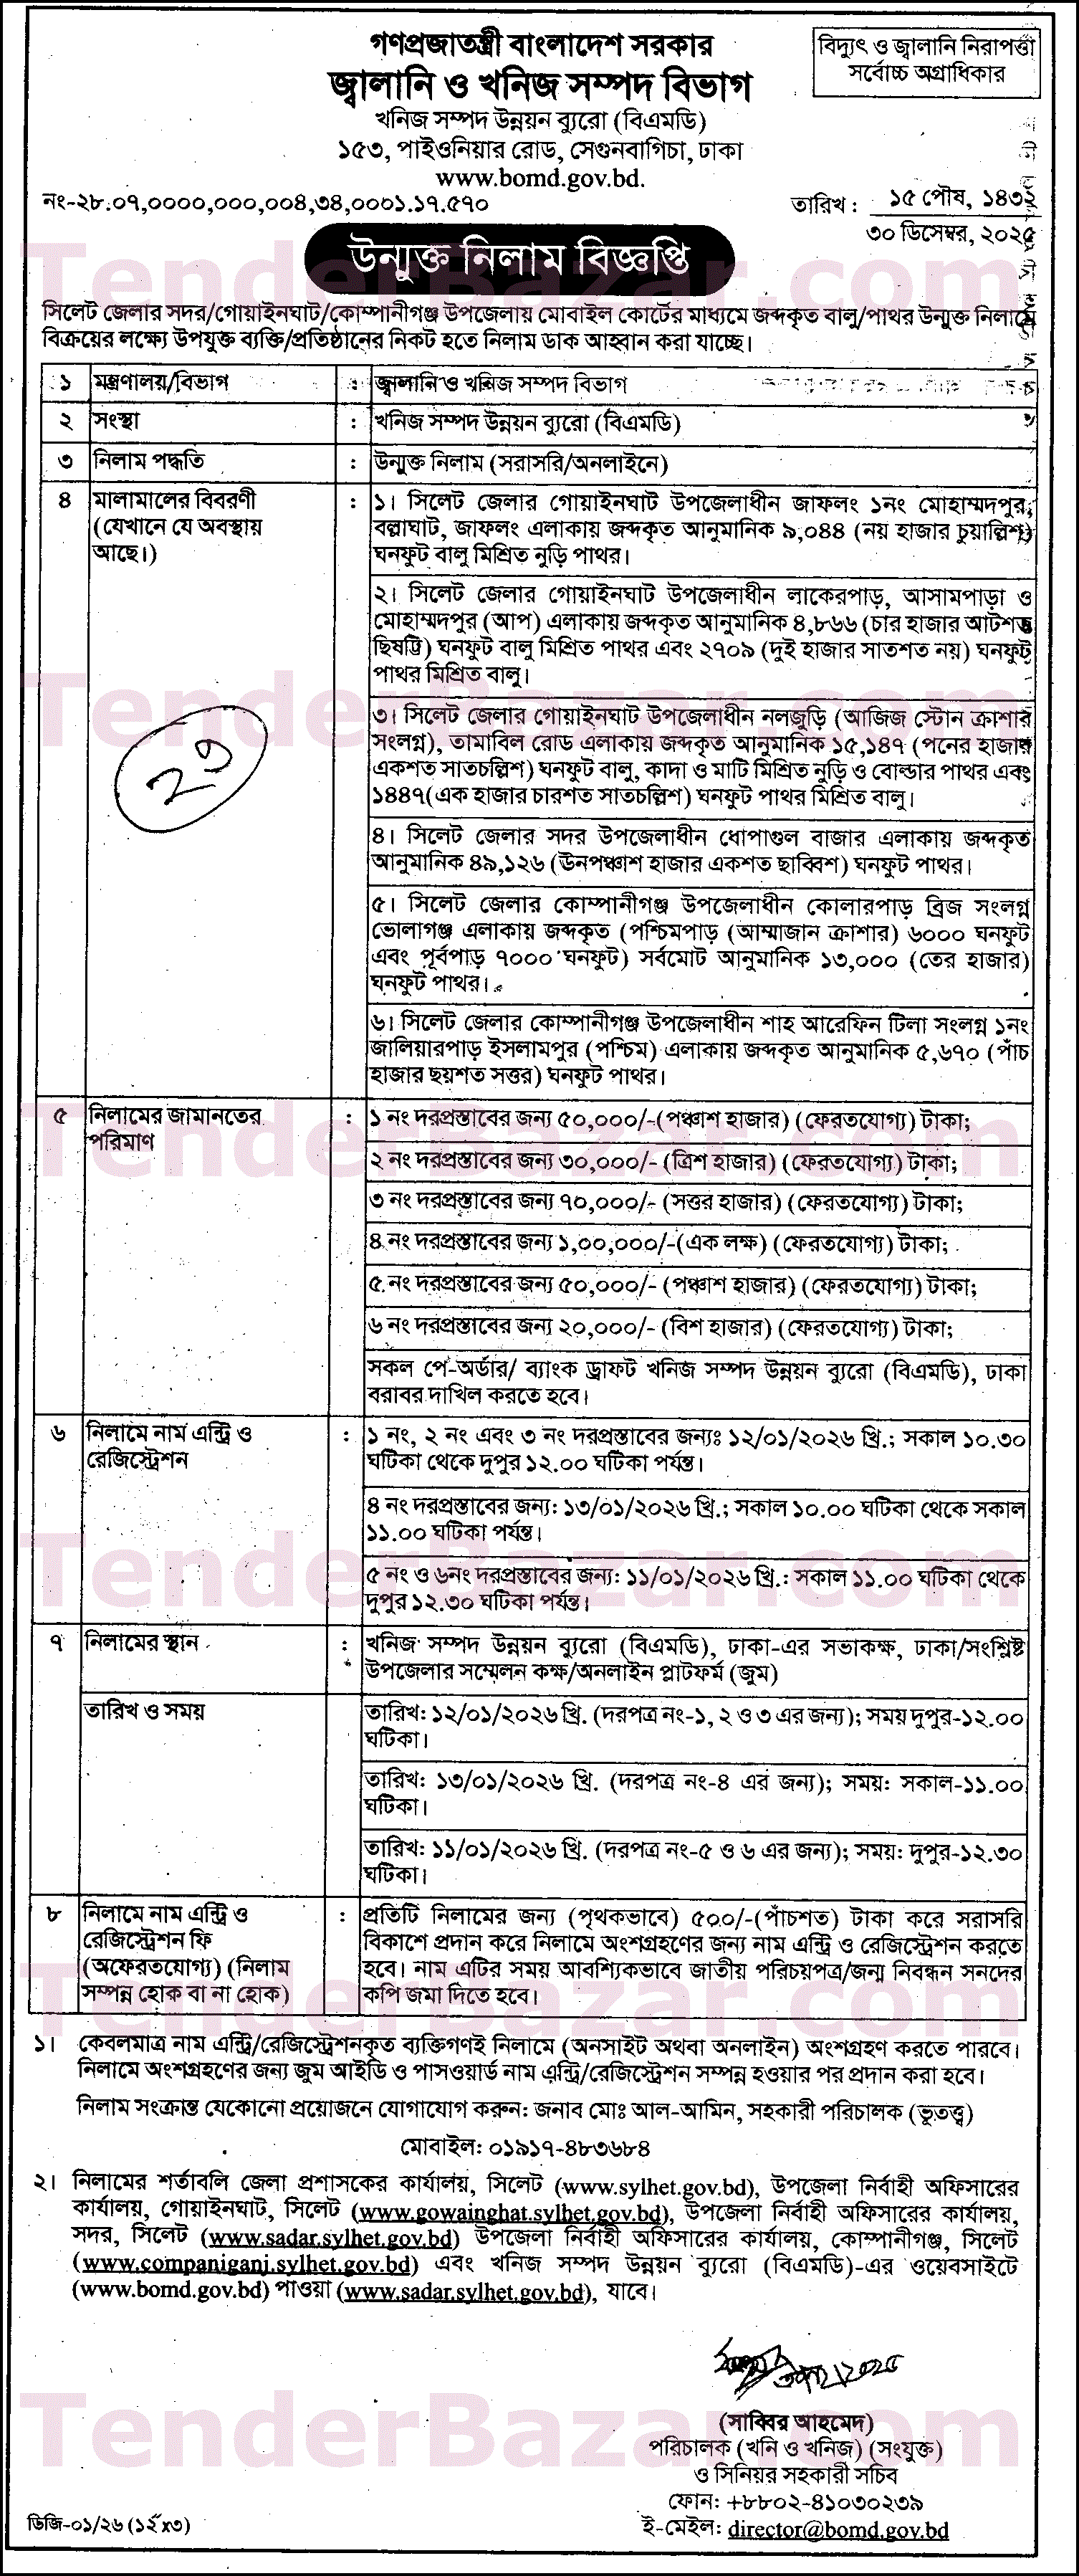 গণপ্রজাতন্ত্রী বাংলাদেশ সরকার
জ্বালানি ও খনিজ সম্পদ বিভাগ
খনিজ সম্পদ উন্নয়ন ব্যুরো (বিএমডি)
১৫৩, পাইওনিয়ার রোড, সেগুনবাগিচা, ঢাকা
www.bomd.gov.bd.
বিদ্যুৎ ও জ্বালানি নিরাপত্তা
সর্বোচ্চ অগ্রাধিকার
নং-২৮.০৭,০০০০,০০০,০০৪,৩৪,০০০১.১৭.৫৭০
তারিখ : ১৫ পৌষ, ১৪৩২
৩০ ডিসেম্বর, ২০২৫
উন্মুক্ত নিলাম বিজ্ঞপ্তি
সিলেট জেলার সদর/গোয়াইনঘাট/কোম্পানীগঞ্জ উপজেলায় মোবাইল কোর্টের মাধ্যমে জব্দকৃত বালু/পাথর উন্মুক্ত নিলামে
বিক্রয়ের লক্ষ্যে উপযুক্ত ব্যক্তি/প্রতিষ্ঠানের নিকট হতে নিলাম ডাক আহ্বান করা যাচ্ছে।
১ মন্ত্রণালয়/বিভাগ : জ্বালানি ও খনিজ সম্পদ বিভাগ
২ সংস্থা : খনিজ সম্পদ উন্নয়ন ব্যুরো (বিএমডি)
৩ নিলাম পদ্ধতি : উন্মুক্ত নিলাম (সরাসরি/অনলাইনে)
৪ মালামালের বিবরণী
(যেখানে যে অবস্থায়
আছে।)
:
১। সিলেট জেলার গোয়াইনঘাট উপজেলাধীন জাফলং ১নং মোহাম্মদপুর,
বল্লাঘাট, জাফলং এলাকায় জব্দকৃত আনুমানিক ৯,০৪৪ (নয় হাজার চুয়াল্লিশ)
ঘনফুট বালু মিশ্রিত নুড়ি পাথর।
২। সিলেট জেলার গোয়াইনঘাট উপজেলাধীন লাকেরপাড়, আসামপাড়া ও
মোহাম্মদপুর (আপ) এলাকায় জব্দকৃত আনুমানিক ৪,৮৬৬ (চার হাজার আটশত
ছিষট্টি) ঘনফুট বালু মিশ্রিত পাথর এবং ২৭০৯ (দুই হাজার সাতশত নয়) ঘনফুট
পাথর মিশ্রিত বালু।
৩। সিলেট জেলার গোয়াইনঘাট উপজেলাধীন নলজুড়ি (আজিজ স্টোন ক্রাশার
সংলগ্ন), তামাবিল রোড এলাকায় জব্দকৃত আনুমানিক ১৫,১৪৭ (পনের হাজার
একশত সাতচল্লিশ) ঘনফুট বালু, কাদা ও মাটি মিশ্রিত নুড়ি ও বোল্ডার পাথর এবং
১৪৪৭(এক হাজার চারশত সাতচল্লিশ) ঘনফুট পাথর মিশ্রিত বালু।
৪। সিলেট জেলার সদর উপজেলাধীন ধোপাগুল বাজার এলাকায় জব্দকৃত
আনুমানিক ৪৯,১২৬ (ঊনপঞ্চাশ হাজার একশত ছাব্বিশ) ঘনফুট পাথর।
৫। সিলেট জেলার কোম্পানীগঞ্জ উপজেলাধীন কোলারপাড় ব্রিজ সংলগ্ন
ভোলাগঞ্জ এলাকায় জব্দকৃত (পশ্চিমপাড় (আম্মাজান ক্রাশার) ৬০০০ ঘনফুট
এবং পূর্বপাড় ৭০০০ ঘনফুট) সর্বমোট আনুমানিক ১৩,০০০ (তের হাজার)
ঘনফুট পাথর।
৬। সিলেট জেলার কোম্পানীগঞ্জ উপজেলাধীন শাহ আরেফিন টিলা সংলগ্ন ১নং
জালিয়ারপাড় ইসলামপুর (পশ্চিম) এলাকায় জব্দকৃত আনুমানিক ৫,৬৭০ (পাঁচ
হাজার ছয়শত সত্তর) ঘনফুট পাথর।
২৩
৫ নিলামের জামানতের
পরিমাণ
:
১ নং দরপ্রস্তাবের জন্য ৫০,০০০/-(পঞ্চাশ হাজার) (ফেরতযোগ্য) টাকা;
২ নং দরপ্রস্তাবের জন্য ৩০,০০০/- (ত্রিশ হাজার) (ফেরতযোগ্য) টাকা;
৩ নং দরপ্রস্তাবের জন্য ৭০,০০০/- (সত্তর হাজার) (ফেরতযোগ্য) টাকা;
৪ নং দরপ্রস্তাবের জন্য ১,০০,০০০/-(এক লক্ষ) (ফেরতযোগ্য) টাকা;
৫ নং দরপ্রস্তাবের জন্য ৫০,০০০/- (পঞ্চাশ হাজার) (ফেরতযোগ্য) টাকা;
৬ নং দরপ্রস্তাবের জন্য ২০,০০০/- (বিশ হাজার) (ফেরতযোগ্য) টাকা;
সকল পে-অর্ডার/ ব্যাংক ড্রাফট খনিজ সম্পদ উন্নয়ন ব্যুরো (বিএমডি), ঢাকা
বরাবর দাখিল করতে হবে।
৬ নিলামে নাম এন্ট্রি ও
রেজিস্ট্রেশন
:
১ নং, ২ নং এবং ৩ নং দরপ্রস্তাবের জন্যঃ ১২/০১/২০২৬ খ্রি.; সকাল ১০.৩০
ঘটিকা থেকে দুপুর ১২.০০ ঘটিকা পর্যন্ত।
৪ নং দরপ্রস্তাবের জন্য: ১৩/০১/২০২৬ খ্রি.; সকাল ১০.০০ ঘটিকা থেকে সকাল
১১.০০ ঘটিকা পর্যন্ত।
৫ নং ও ৬নং দরপ্রস্তাবের জন্য: ১১/০১/২০২৬ খ্রি.: সকাল ১১.০০ ঘটিকা থেকে
দুপুর ১২.৩০ ঘটিকা পর্যন্ত।
৭ নিলামের স্থান :
খনিজ সম্পদ উন্নয়ন ব্যুরো (বিএমডি), ঢাকা-এর সভাকক্ষ, ঢাকা/সংশ্লিষ্ট
উপজেলার সম্মেলন কক্ষ/অনলাইন প্লাটফর্ম (জুম)
তারিখ ও সময়
তারিখ: ১২/০১/২০২৬ খ্রি. (দরপত্র নং-১, ২ ও ৩ এর জন্য); সময় দুপুর-১২.০০
ঘটিকা।
তারিখ: ১৩/০১/২০২৬ খ্রি. (দরপত্র নং-৪ এর জন্য); সময়: সকাল-১১.০০
ঘটিকা।
তারিখ: ১১/০১/২০২৬ খ্রি. (দরপত্র নং-৫ ও ৬ এর জন্য); সময়: দুপুর-১২.৩০
ঘটিকা।
৮ নিলামে নাম এন্ট্রি ও
রেজিস্ট্রেশন ফি
(অফেরতযোগ্য) (নিলাম
সম্পন্ন হোক বা না হোক)
:
প্রতিটি নিলামের জন্য (পৃথকভাবে) ৫০০/-(পাঁচশত) টাকা করে সরাসরি
বিকাশে প্রদান করে নিলামে অংশগ্রহণের জন্য নাম এন্ট্রি ও রেজিস্ট্রেশন করতে
হবে। নাম এটির সময় আবশ্যিকভাবে জাতীয় পরিচয়পত্র/জন্ম নিবন্ধন সনদের
কপি জমা দিতে হবে।
১। কেবলমাত্র নাম এন্ট্রি/রেজিস্ট্রেশনকৃত ব্যক্তিগণই নিলামে (অনসাইট অথবা অনলাইন) অংশগ্রহণ করতে পারবে।
নিলামে অংশগ্রহণের জন্য জুম আইডি ও পাসওয়ার্ড নাম এন্ট্রি/রেজিস্ট্রেশন সম্পন্ন হওয়ার পর প্রদান করা হবে।
নিলাম সংক্রান্ত যেকোনো প্রয়োজনে যোগাযোগ করুন: জনাব মোঃ আল-আমিন, সহকারী পরিচালক (ভূতত্ত্ব)
মোবাইল: ০১৯১৭-৪৮৩৬৮৪
২। নিলামের শর্তাবলি জেলা প্রশাসকের কার্যালয়, সিলেট (www.sylhet.gov.bd), উপজেলা নির্বাহী অফিসারের
কার্যালয়, গোয়াইনঘাট, সিলেট (www.gowainghat.sylhet.gov.bd), উপজেলা নির্বাহী অফিসারের কার্যালয়,
সদর, সিলেট (www.sadar.sylhet.gov.bd) উপজেলা নির্বাহী অফিসারের কার্যালয়, কোম্পানীগঞ্জ, সিলেট
(www.companiganj.sylhet.gov.bd) এবং খনিজ সম্পদ উন্নয়ন ব্যুরো (বিএমডি)-এর ওয়েবসাইটে
(www.bomd.gov.bd) পাওয়া (www.sadar.sylhet.gov.bd), যাবে।
(সাব্বির আহমেদ)
পরিচালক (খনি ও খনিজ) (সংযুক্ত)
ও সিনিয়র সহকারী সচিব
ফোন: +৮৮০২-৪১০৩০২৩৯
ই-মেইল: director@bomd.gov.bd
ডিজি-০১/২৬ (১২"x৩)
TenderBazar.com
TenderBazar.com
TenderBazar.com
TenderBazar.com
TenderBazar.com
TenderBazar.com